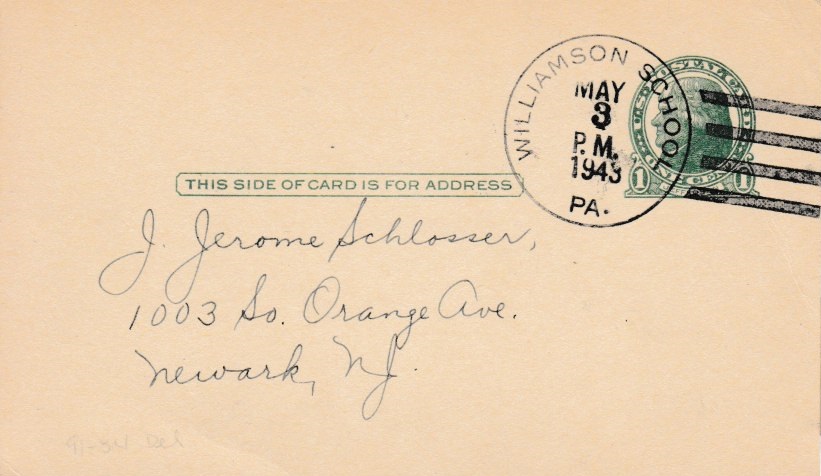 WILLIAMSON SCHOOL
MAY
3
P.M.
1943
PA.
U.S. POSTAL CARD
1 ONE CENT 1
THIS SIDE OF CARD IS FOR ADDRESS
J. Jerome Schlosser,
1003 So. Orange Ave.
Newark, NJ.